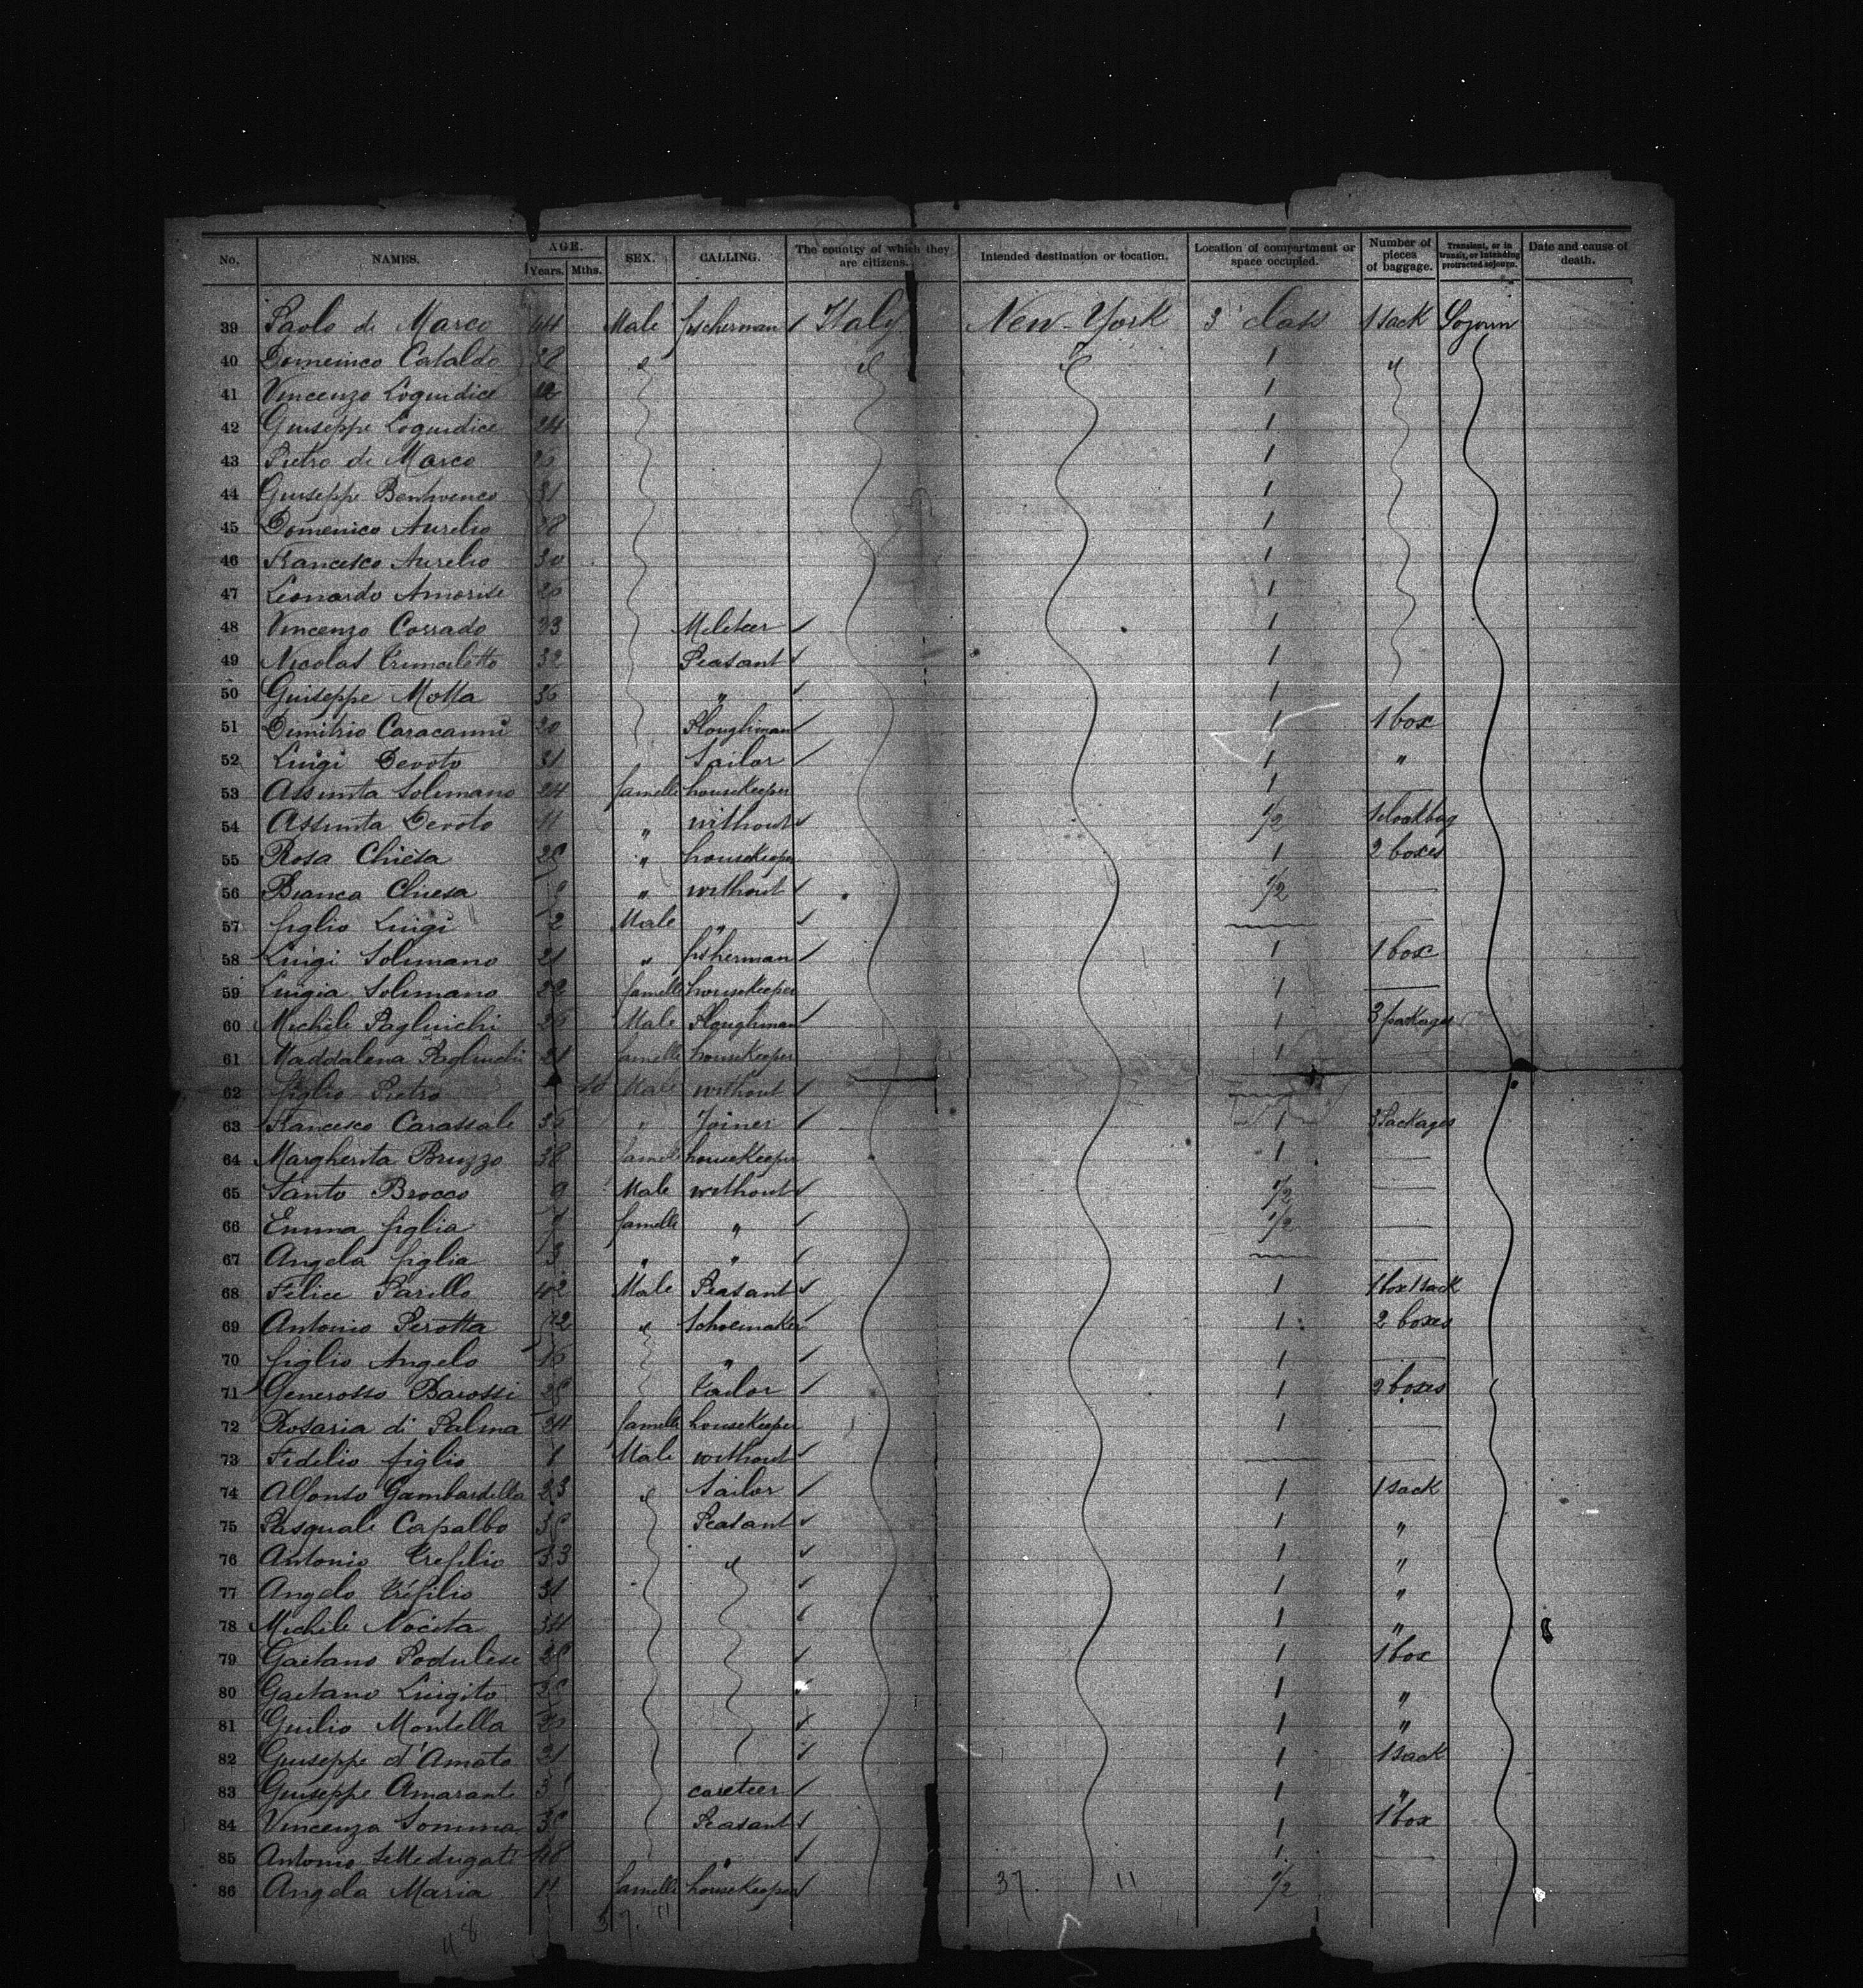 No. NAMES. AGE. Years. Mths. SEX. CALLING. The country of which they are citizens. Intended destination or location. Location of compartment or space occupied. Number of pieces of baggage. Transient, or in transit, or intending protracted sojourn. Date and cause of death.
39 Paolo di Marco 44 Male fischerman Italy New-York 3 class 1 sack Sojourn
40 Domenico Cataldo 28 1 "
41 Vincenzo Logiudice 1
42 Giuseppe Logiudice 24 1
43 Pietro di Marco 1
44 Giuseppe 31 1
45 Domenico Aurelio 28 1
46 Francesco Aurelio 30 1
47 Leonardo Amorise 26 1
48 Vincenzo Corrado 33 1
49 Nicolas 32 Peasant 1
50 Guiseppe Motta 36 " 1
51 Dimitrio Caracanni 20 Ploughman 1 1 box
52 Luigi Devoto 31 Sailor 1 "
53 Assunta Solimano 24 famelle housekeeper 1
54 Assunta Devoto 11 " without 1/2
55 Rosa Chiesa " housekeeper 1 2 boxes
56 Bianca Chiesa " without 1/2
57 figlio Luigi 2 Male "
58 Luigi Solimano 21 " fisherman 1 1 box
59 Luigia Solimano 22 famelle housekeeper 1
60 Michele Pagluichi 26 Male Ploughman 1 3 packages
61 Maddalena Pagluichi 21 famelle housekeeper 1
62 figlio Pietro 10 Male without
63 Francesco Carassale 36 " Joiner 1 3 Packages
64 Margherita Bruzzo 38 famelle housekeeper 1
65 Santo Brocco 9 Male without 1/2
66 Emma figlia famelle " 1/2
67 Angela figlia 3 " "
68 Felice Parillo 42 Male Peasant 1 1 box 1 sack
69 Antonio Perotta Schoemaker 1 2 boxes
70 figlio Angelo 16 " 1
71 Generosso Barossi Tailor 1 2 boxes
72 Rosaria di Palma 34 famelle housekeeper 1
73 Fidelio figlio Male without
74 Alfonso Gambardella 23 Sailor 1 1 sack
75 Pasquale Capalbo Peasant 1 "
76 Antonio Trefilio 33 1 "
77 Angelo Trefilio 31 1 "
78 Michele Nocita 34 1 "
79 Gaetano Podulese 1 1 box
80 Gaetano Luigito 1 "
81 Guilio Montella 1 "
82 Giuseppe d'Amato 21 1 1 sack
83 Giuseppe Amarante careteer 1 "
84 Vincenza Somma Peasant 1 1 box
85 Antonio 48 " 1
86 Angela Maria 11 famelle housekeeper 37. 11 1/2
37. 11
48